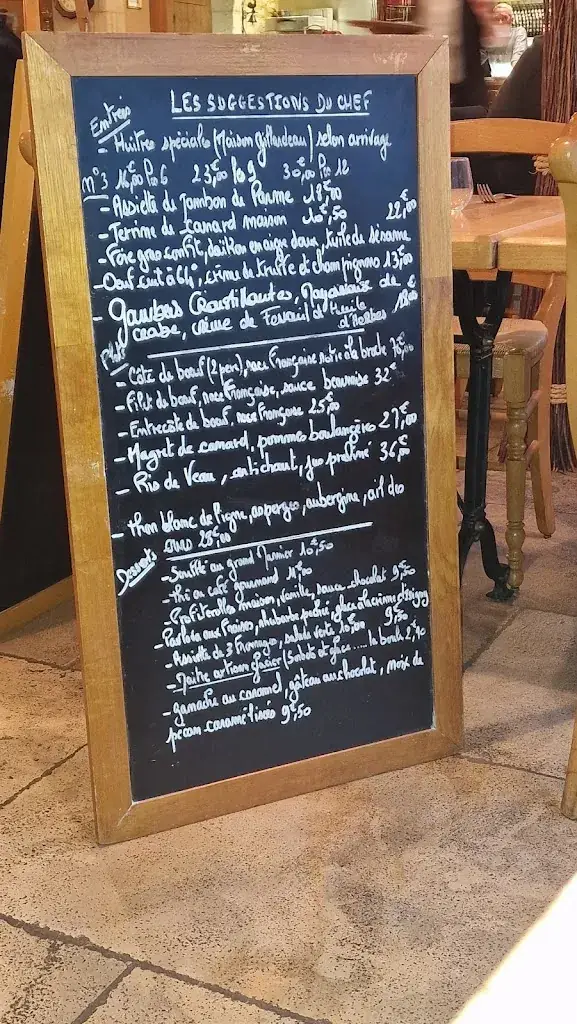 LES SUGGESTIONS DU CHEF
Entrées
- Huitres spéciales (Maison Gillardeau) selon arrivage
n°3 16,00 Par 6 23,00 Par 9 30,00 Par 12
- Assiette de jambon de Parme 18,00
- Terrine de canard maison 10,50
- Foie gras confit, daikon en aigre doux, tuile de sésame 22,00
- Oeuf cuit à 64°, crème de truffe et champignons 13,00
- Gambas Croustillantes, Mayonnaise de
crabe, crème de Fenouil et Huile d'Herbes 18,00
Plats
- Côte de boeuf (2 pers), race Française rotie à la broche 70,00
- Filet de boeuf, race Française, sauce bearnaise 32€
- Entrecote de boeuf, race Française 25,00
- Magret de canard, pommes boulangères 27,00
- Ris de Veau, artichaut, jus praliné 36,00
- Thon blanc de ligne, asperges, aubergine, ail des
ours 28,00
Desserts
- Soufflé au grand Marnier 10,50
- Thé ou café gourmand
- Profiteroles maison, vanille, sauce chocolat 9,50
- Pavlova aux fraises, rhubarbe poché, glace à la crème d'Isigny 9,50
- Assiette de 3 Fromages, salade verte 10,00
- Maître artisan glacier (Sorbets et glace .... la boule 2,90
- ganache au caramel, gâteau au chocolat, noix de
pecan caramélisées 9,50